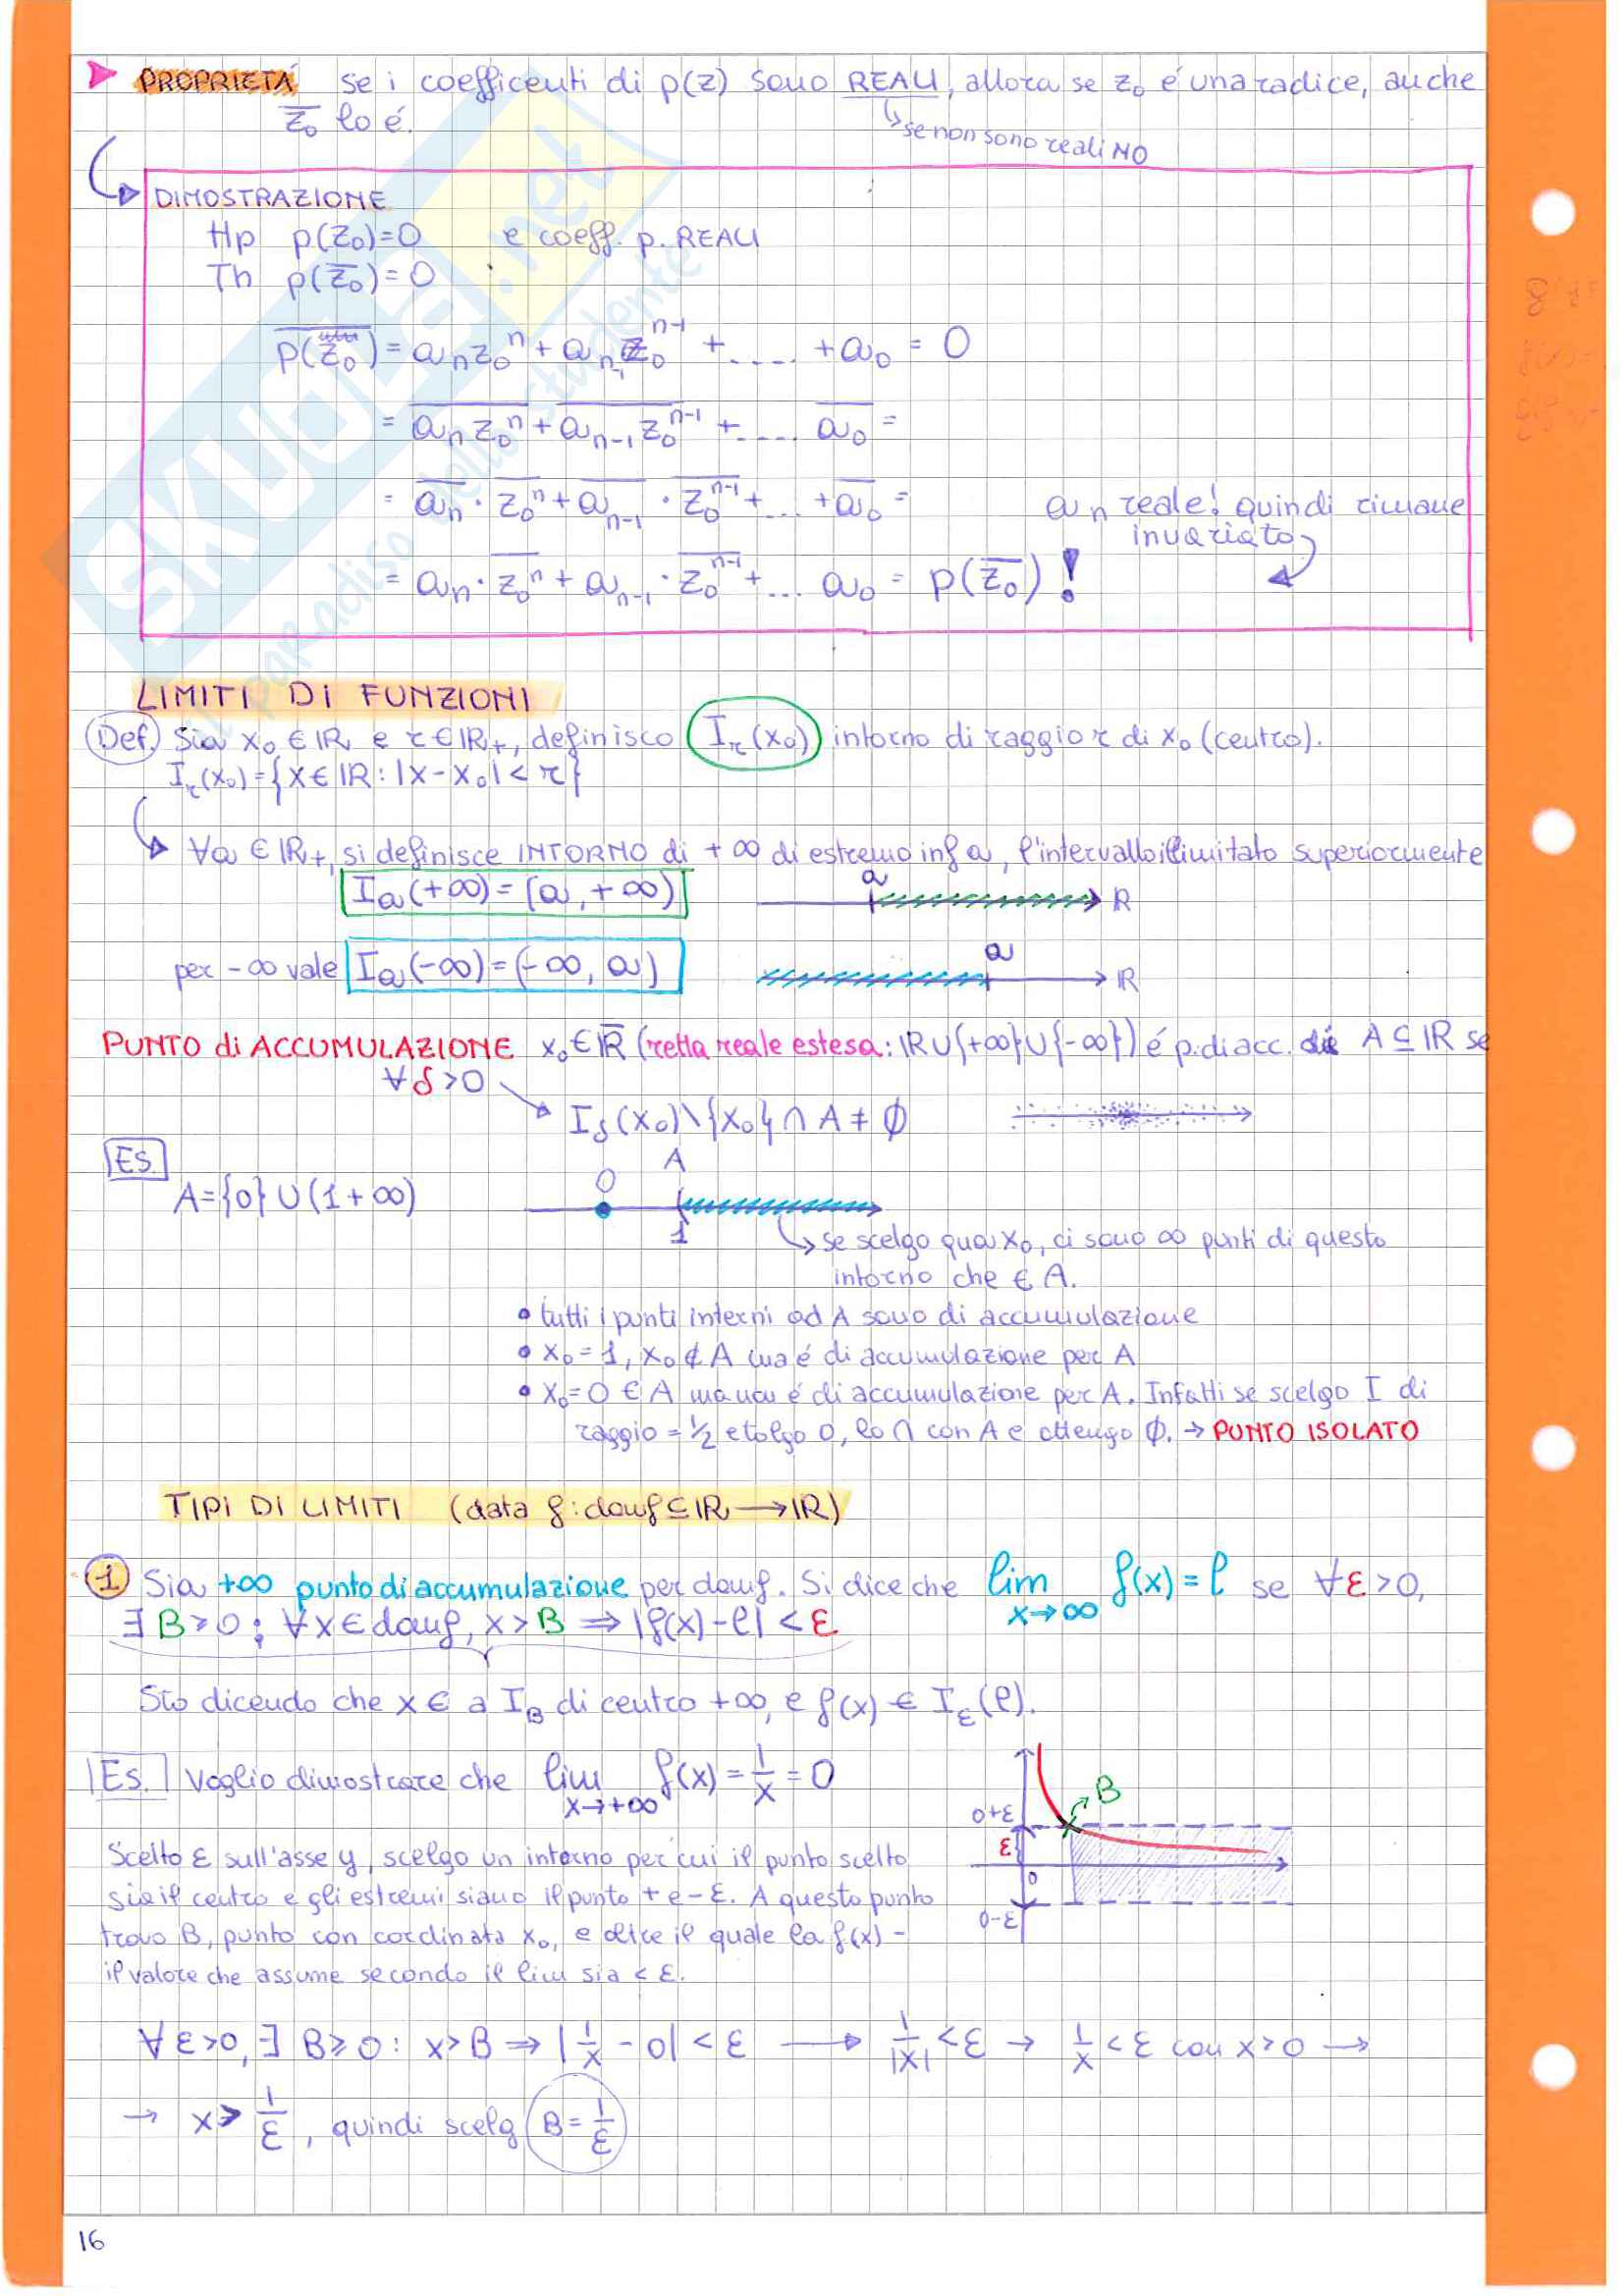 PROPRIETÁ se i coefficenti di p(z) sono REALI, allora se z₀ é una radice, anche
z̅₀ lo é.
↳ se non sono reali NO
DIMOSTRAZIONE
Hp p(z₀)=0 e coeff. p. REALI
Th p(z̅₀)=0
p(z₀) = aₙz₀ⁿ + aₙ₋₁z₀ⁿ⁻¹ + ..... + a₀ = 0
= aₙz₀ⁿ + aₙ₋₁z₀ⁿ⁻¹ + .... a₀ =
= aₙ · z₀ⁿ + aₙ₋₁ · z₀ⁿ⁻¹ + ... + a₀ =
aₙ reale! quindi rimane
invariato
= aₙ · z̅₀ⁿ + aₙ₋₁ · z̅₀ⁿ⁻¹ + ... a₀ = p(z̅₀) !
LIMITI DI FUNZIONI
Def. Sia x₀ ∈ ℝ e r ∈ ℝ₊, definisco Iᵣ(x₀) intorno di raggio r di x₀ (centro).
Iᵣ(x₀) = {x ∈ ℝ : |x - x₀| < r}
↳ ∀a ∈ ℝ₊, si definisce INTORNO di +∞ di estremo inf a, l'intervallo illimitato superiormente
Iₐ(+∞) = (a, +∞)
a
R
per -∞ vale Iₐ(-∞) = (-∞, a)
a
R
PUNTO di ACCUMULAZIONE x₀ ∈ ℝ̅ (retta reale estesa: ℝ∪{+∞}∪{-∞}) é p. di acc. di A ⊆ ℝ se
∀δ>0
I_δ(x₀)\{x₀} ∩ A ≠ ∅
Es.
A={0} ∪ (1+∞)
0
A
1
↳ se scelgo qua x₀, ci sono ∞ punti di questo
intorno che ∈ A.
• tutti i punti interni ad A sono di accumulazione
• x₀ = 1, x₀ ∉ A ma é di accumulazione per A
• x₀ = 0 ∈ A ma non é di accumulazione per A. Infatti se scelgo I di
raggio = 1/2 e tolgo 0, lo ∩ con A e ottengo ∅. → PUNTO ISOLATO
TIPI DI LIMITI (data f: domf ⊆ ℝ → ℝ)
1 Sia +∞ punto di accumulazione per domf. Si dice che lim x→∞ f(x) = l se ∀ε>0,
∃ B≥0 : ∀x ∈ domf, x > B ⇒ |f(x) - l| < ε
Sto dicendo che x ∈ a I_B di centro +∞, e f(x) ∈ I_ε(l).
Es. Voglio dimostrare che lim x→+∞ f(x) = 1/x = 0
B
0+ε
ε
0
0-ε
Scelto ε sull'asse y, scelgo un intorno per cui il punto scelto
sia il centro e gli estremi siano il punto + e - ε. A questo punto
trovo B, punto con cordinata x₀, e oltre il quale la f(x) -
il valore che assume secondo il lim sia < ε.
∀ ε>0, ∃ B≥0 : x>B ⇒ |1/x - 0| < ε ⟶ 1/|x| < ε → 1/x < ε con x>0 →
→ x > 1/ε, quindi scelg B = 1/ε
16
SKUOLA.net
il paradiso dello studente